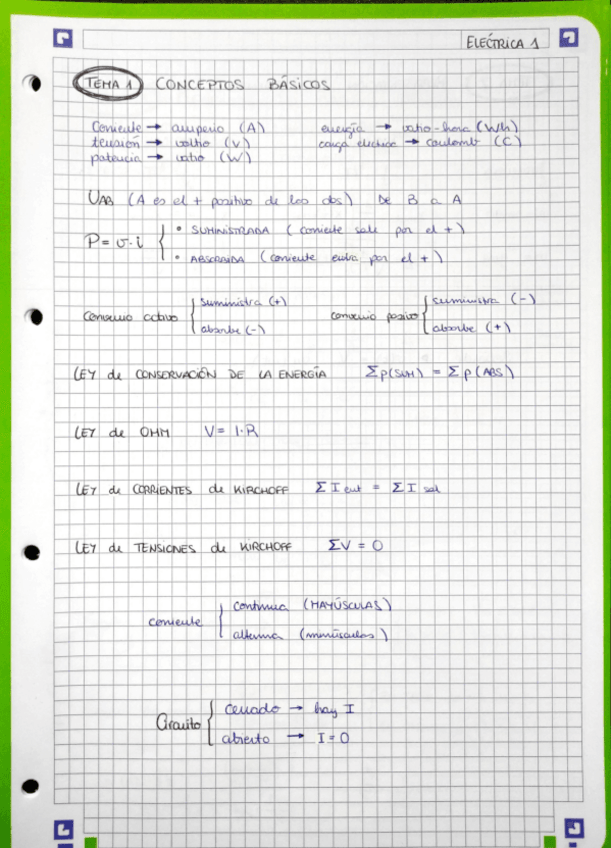 ELÉCTRICA 1
TEMA 1 CONCEPTOS BÁSICOS
Corriente → amperio (A) energía → vatio-hora (Wh)
tensión → voltio (V) carga eléctrica → coulomb (C)
potencia → vatio (W)
UAB (A es el + positivo de los dos) DE B a A
P = v·i { • SUMINISTRADA (corriente sale por el +)
• ABSORBIDA (corriente entra por el +)
Convenio activo { suministra (+) convenio pasivo { suministra (-)
absorbe (-) absorbe (+)
LEY de CONSERVACIÓN DE LA ENERGÍA Σp(SUM) = Σp(ABS)
LEY de OHM V = I·R
LEY de CORRIENTES de KIRCHOFF ΣI ent = ΣI sal
LEY de TENSIONES de KIRCHOFF ΣV = 0
corriente { continua (MAYÚSCULAS)
alterna (minúsculas)
Circuito { cerrado → hay I
abierto → I = 0